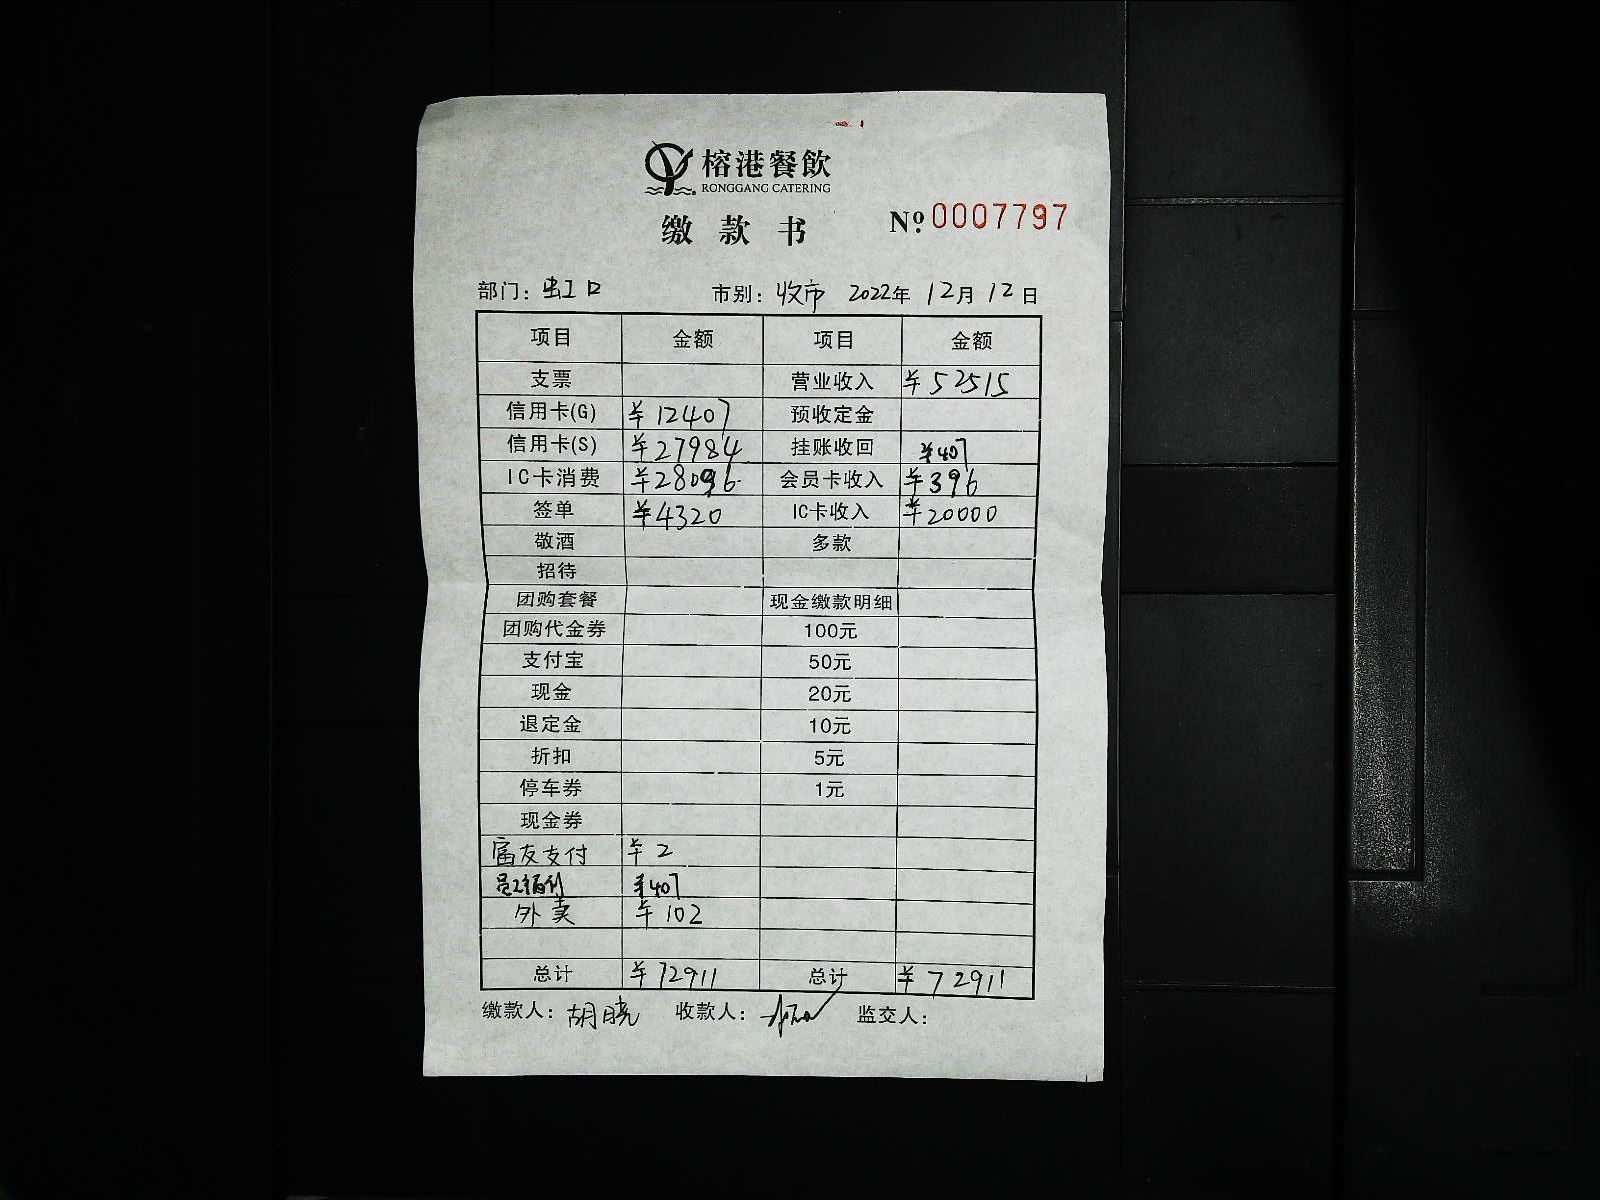 榕港餐飲
RONGGANG CATERING
缴款书 Nº 0007797
部门: 虹口 市别: 收市 2022年 12月 12日
项目 金额 项目 金额
支票 营业收入 ¥52515
信用卡(G) ¥12407 预收定金
信用卡(S) ¥27984 挂账收回 ¥407
IC卡消费 ¥28096 会员卡收入 ¥396
签单 ¥4320 IC卡收入 ¥20000
敬酒 多款
招待
团购套餐 现金缴款明细
团购代金券 100元
支付宝 50元
现金 20元
退定金 10元
折扣 5元
停车券 1元
现金券
富友支付 ¥2
¥407
外卖 ¥102
总计 ¥72911 总计 ¥72911
缴款人: 胡晓 收款人: 监交人: